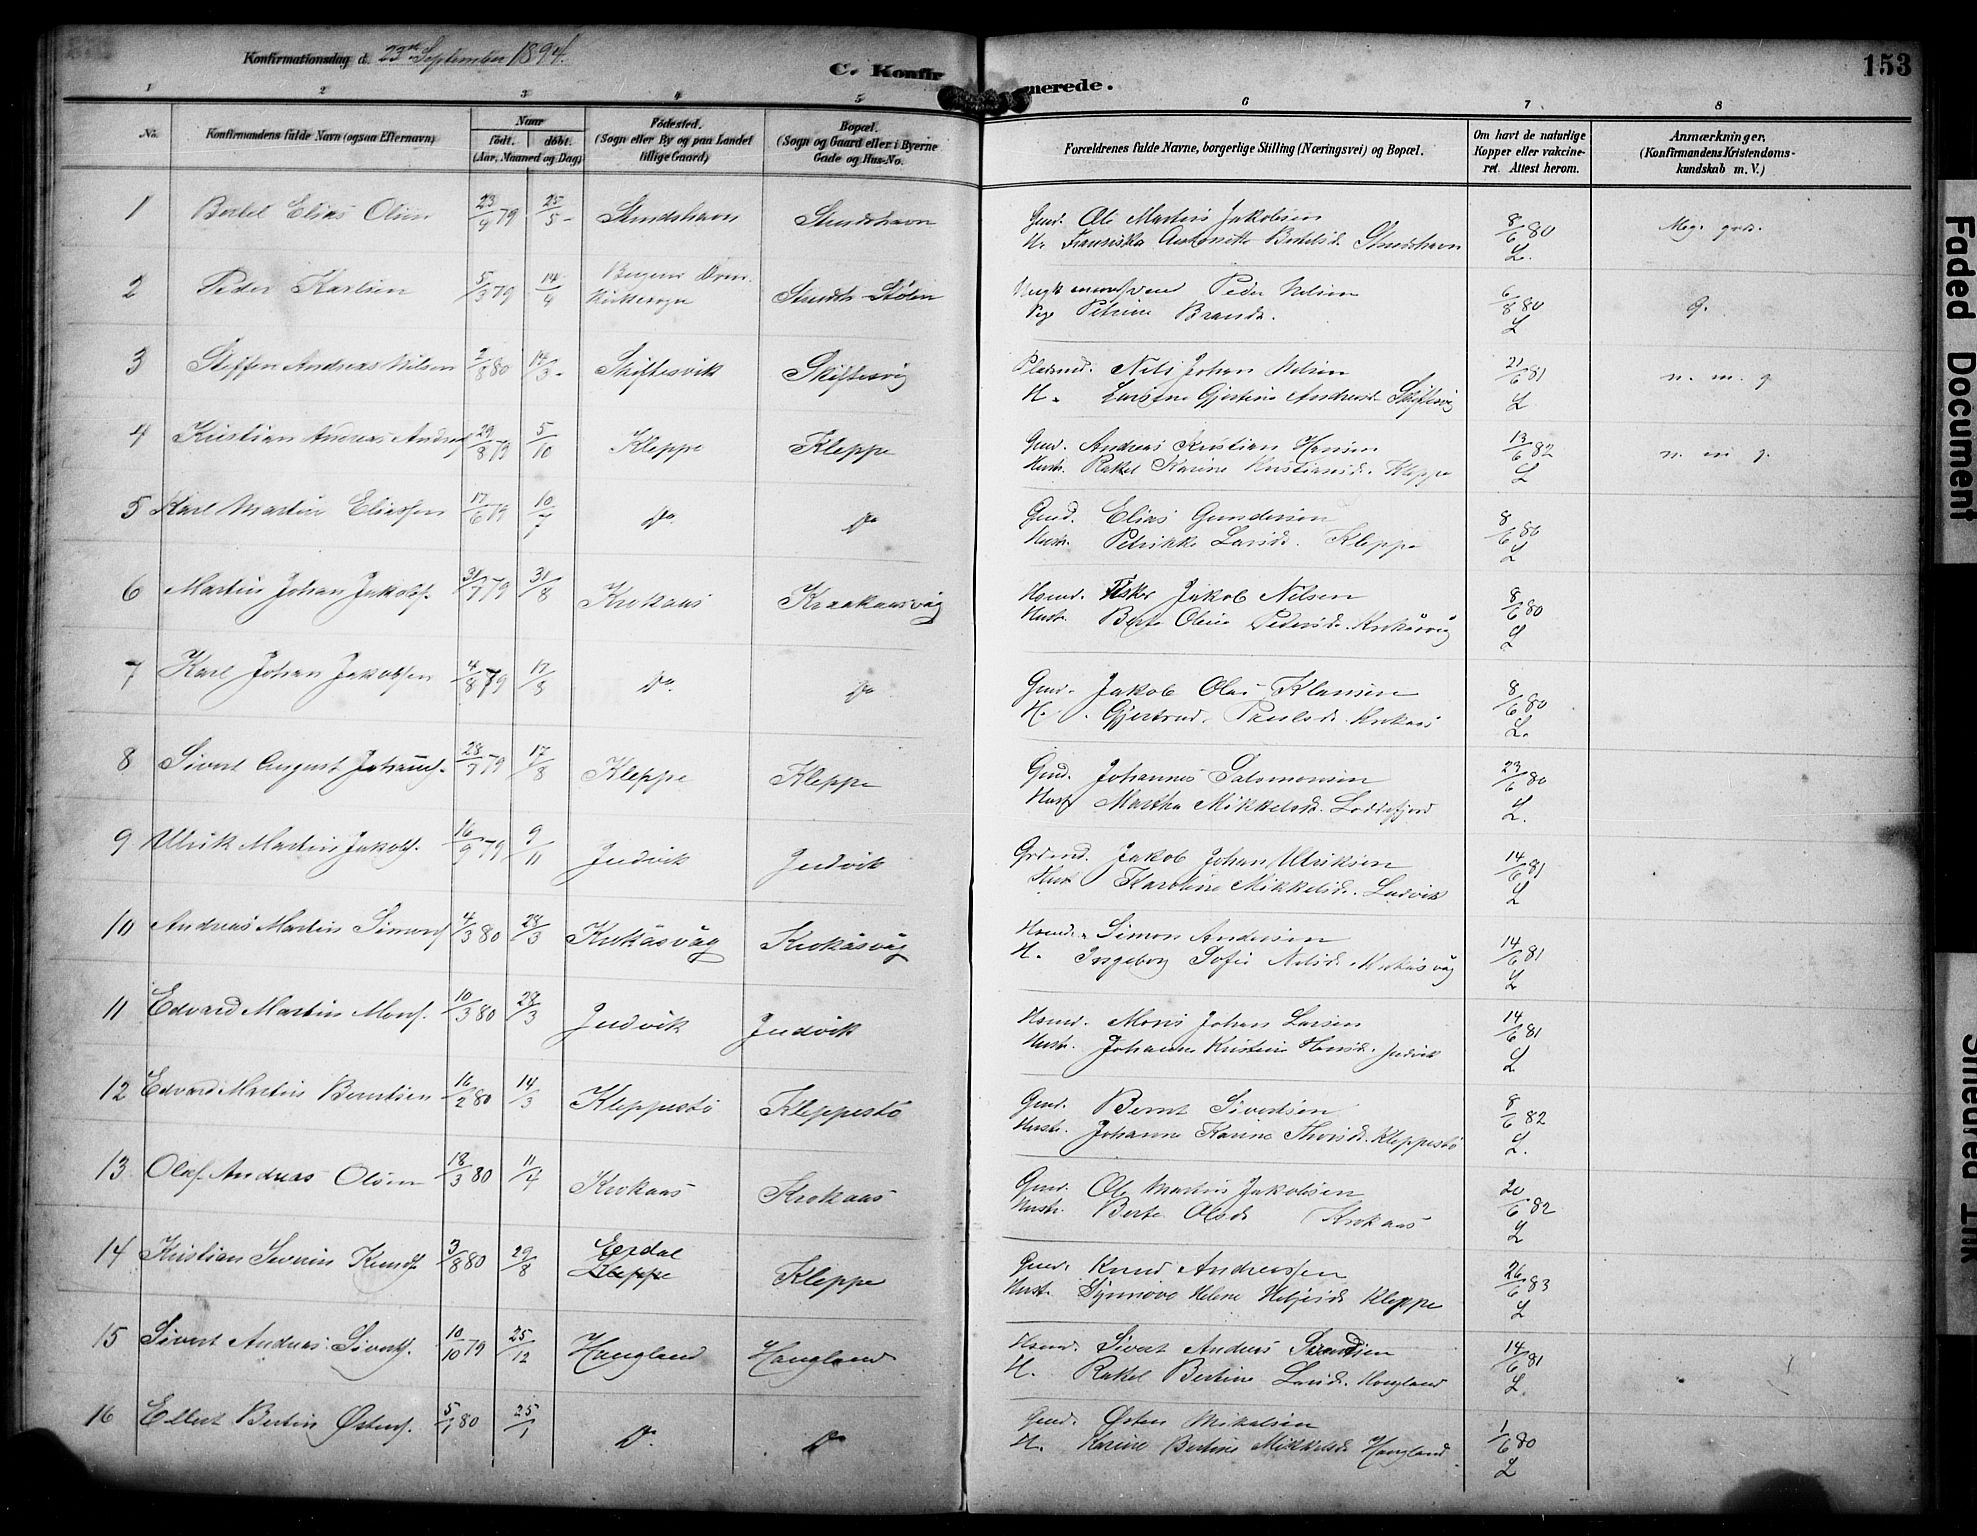 Konfirmationsdag d. 23de September 1894.
C. Konfirmerede.
153
1 2 3 4 5 6 7. 8
No. Konfirmandens fulde Navn (ogsaa Efternavn) Naar født. døbt. (Aar, Maaned og Dag) Fødested. (Sogn eller By og paa Landet tillige Gaard) Bopæl. (Sogn og Gaard eller i Byerne Gade og Hus-No. Forældrenes fulde Navne, borgerlige Stilling (Næringsvei) og Bopæl. Om havt de naturlige Kopper eller vakcineret. Attest herom. Anmærkninger. (Konfirmandens Kristendomskundskab m. V.)
1 Bertel Elias Olsen 23/4 79 25/5 - Strudshavn Strudshavn Gmd. Ole Martin Jakobsen 8/6 80 Meg. god.
H. Fransiska Antonette Bertelsd. Strudshavn L.
2 Peder Karlsen 5/3 79 14/4 Bergens Dom Kirkesogn Peder Nilsen 6/8 80 G.
Pige Petrine Brandt. L
3 Steffen Andreas Nilsen 2/8 80 14/3 - Skiftesvik Skiftesvig Pladsmd. Nils Johan Nilsen 21/6 81 n. m. g.
H. Gjertine Andreasd. Skiftesvig L
4 Kristian Andreas Andresf 29/8 79 5/10 Kleppe Kleppe Gmd. Andreas Kristian Hansen 13/6 82 n. m g.
Hustr. Rakel Karine Kristiansd. Kleppe L
5 Karl Martin Eliassen 17/6 79 10/7 Do Do Gmd. Elias Gundersen 8/6 80
Hustr. Petrikke Larsd. Kleppe L
6 Martin Johan Jakobsf. 31/7 79 31/8 Krokaas Kraakaasvåg Hsmd. Fisker Jakob Nilsen 8/6 80
Hustr. Berte Oline Pedersd. Krokåsvåg L
7 Karl Johan Jakobsen 4/8 79 17/8 Do. Do Gmd. Jakob Olai Klausen 8/6 80
H. Gjertrud Paulsd. Krokaas L.
8 Sivert August Johannsf. 28/7 79 17/8 Kleppe Kleppe Gmd. Johannes Salomonsen 23/6 80
Hustr Martha Mikkelsd. Loddefjord L.
9 Ulrik Martin Jakobsf. 16/9 79 9/11 Judvik Judvik Grdmd. Jakob Johan Ulriksen 14/6 81
Hustr Karoline Mikkelsd. L
10 Andreas Martin Simonsf 4/3 80 28/3 Krokåsvåg Krokåsvåg Hsmd. Simon Andersen 14/6 81
H. Ingeborg Sofie Nilsd. Krokåsvåg L
11 Edvard Martin Monsf. 10/3 80 28/3 Judvik Judvik Hsmd. Mons Johan Larsen 14/6 81
Hustr. Johanne Kristine Hansd. Judvik L
12 Edvard Martin Berntsen 16/2 80 14/3 Kleppestø Kleppestø Gmd. Bernt Sivertsen 8/6 82
Hustr. Johanne Karine Kleppestø L.
13 Olaf Andreas Olsen 18/3 80 11/4 Krokaas Krokaas Gmd. Ole Martin Jakobsen 20/6 82
Hustr. Berte Olsd Krokaas L
14 Kristian Severin Knudsf. 3/8 80 29/8 Erdal Kleppe Kleppe Gmd. Knud Andreassen 26/6 83
Hustr. Synnøve Helene Kleppe L
15 Sivert Andreas Sivertsf. 10/10 79 25/12 Haugland Haugland Hsmd. Sivert Andreas 14/6 81
H. Rakel Bertine Larsd. Haugland L.
16 Ellert Bertin Østensf. 5/1 80 25/1 Do. Do Gmd. Østen Mikalsen 1/6 80
H. Karine Bertine Mikkelsd Haugland L
Faded Document
Smeared Ink